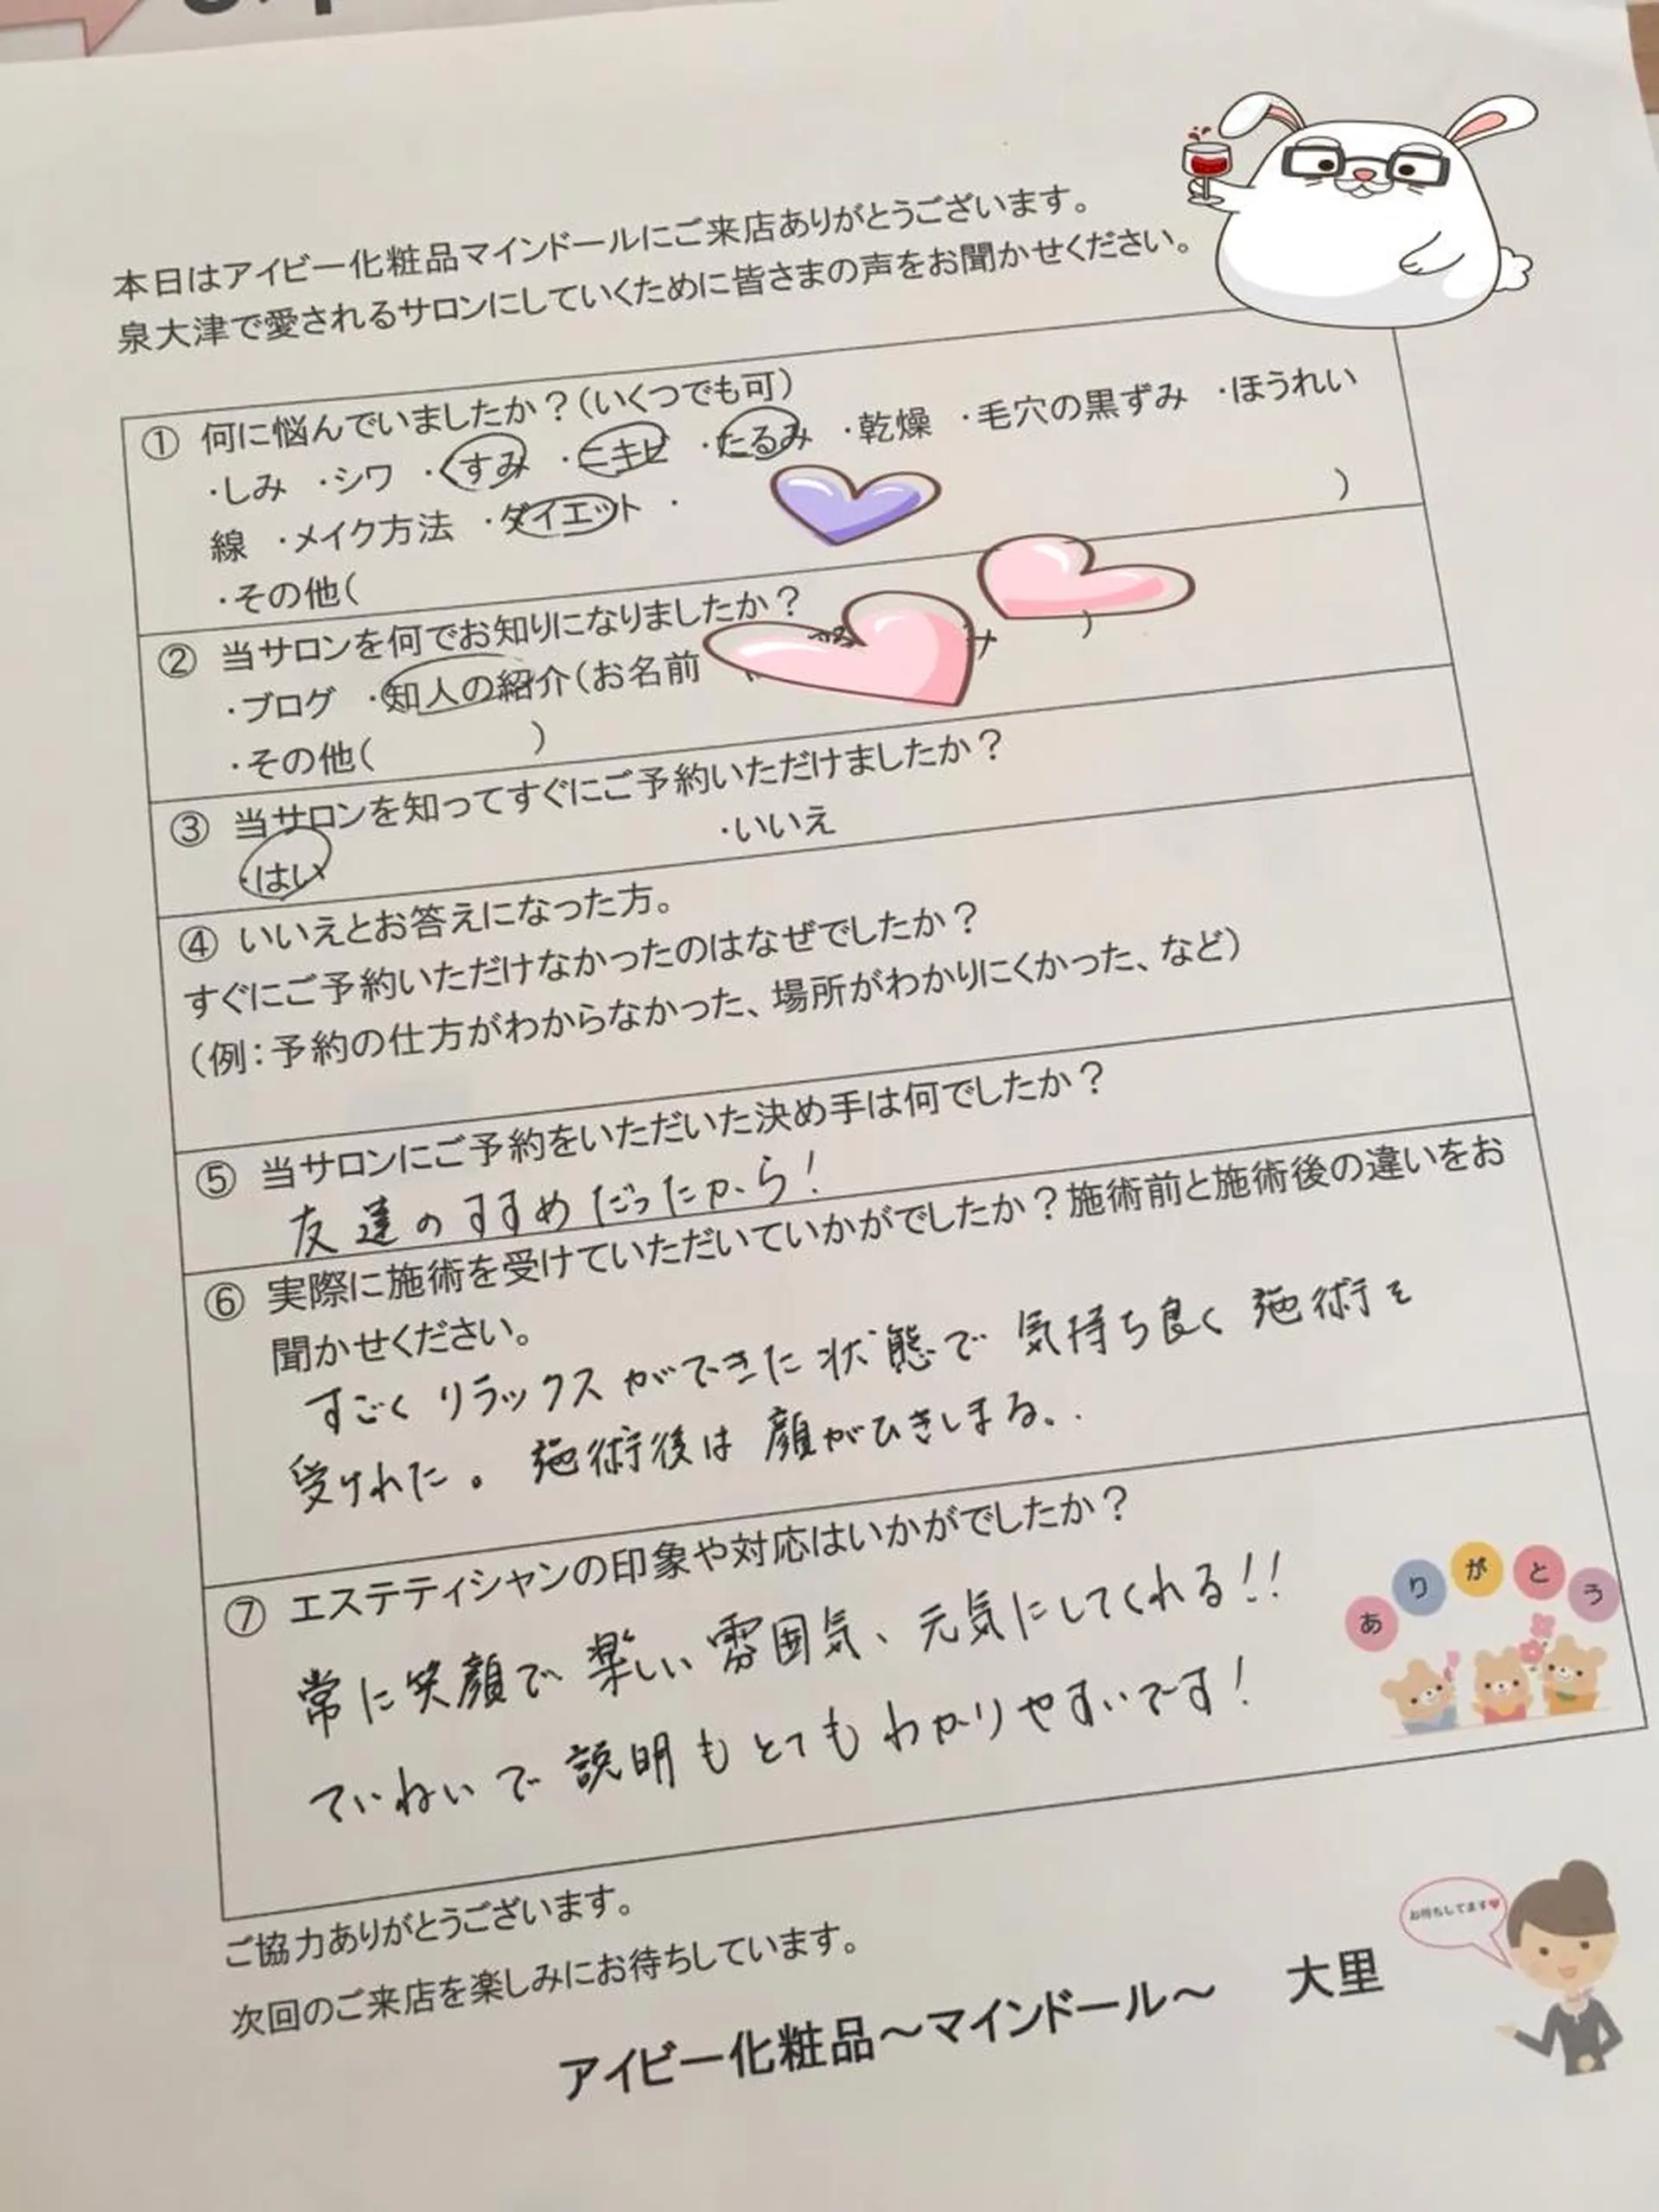 本日はアイビー化粧品マインドールにご来店ありがとうございます。
泉大津で愛されるサロンにしていくために皆さまの声をお聞かせください。
① 何に悩んでいましたか？(いくつでも可)
・しみ ・シワ ・くすみ ・ニキビ ・たるみ ・乾燥 ・毛穴の黒ずみ ・ほうれい
線 ・メイク方法 ・ダイエット ・
・その他( )
② 当サロンを何でお知りになりましたか？
・ブログ ・知人の紹介(お名前 )
・その他( )
③ 当サロンを知ってすぐにご予約いただけましたか？
・はい ・いいえ
④ いいえとお答えになった方。
すぐにご予約いただけなかったのはなぜでしたか？
(例：予約の仕方がわからなかった、場所がわかりにくかった、など)
⑤ 当サロンにご予約をいただいた決め手は何でしたか？
友達のすすめだったから！
⑥ 実際に施術を受けていただいていかがでしたか？施術前と施術後の違いをお
聞かせください。
すごくリラックスができた状態で気持ち良く施術を
受けれた。施術後は顔がひきしまる。.
⑦ エステティシャンの印象や対応はいかがでしたか？
常に笑顔で楽しい雰囲気、元気にしてくれる!!
ていねいで説明もとてもわかりやすいです！
ありがとう
ご協力ありがとうございます。
次回のご来店を楽しみにお待ちしています。
お待ちしてます♥
アイビー化粧品～マインドール～ 大里